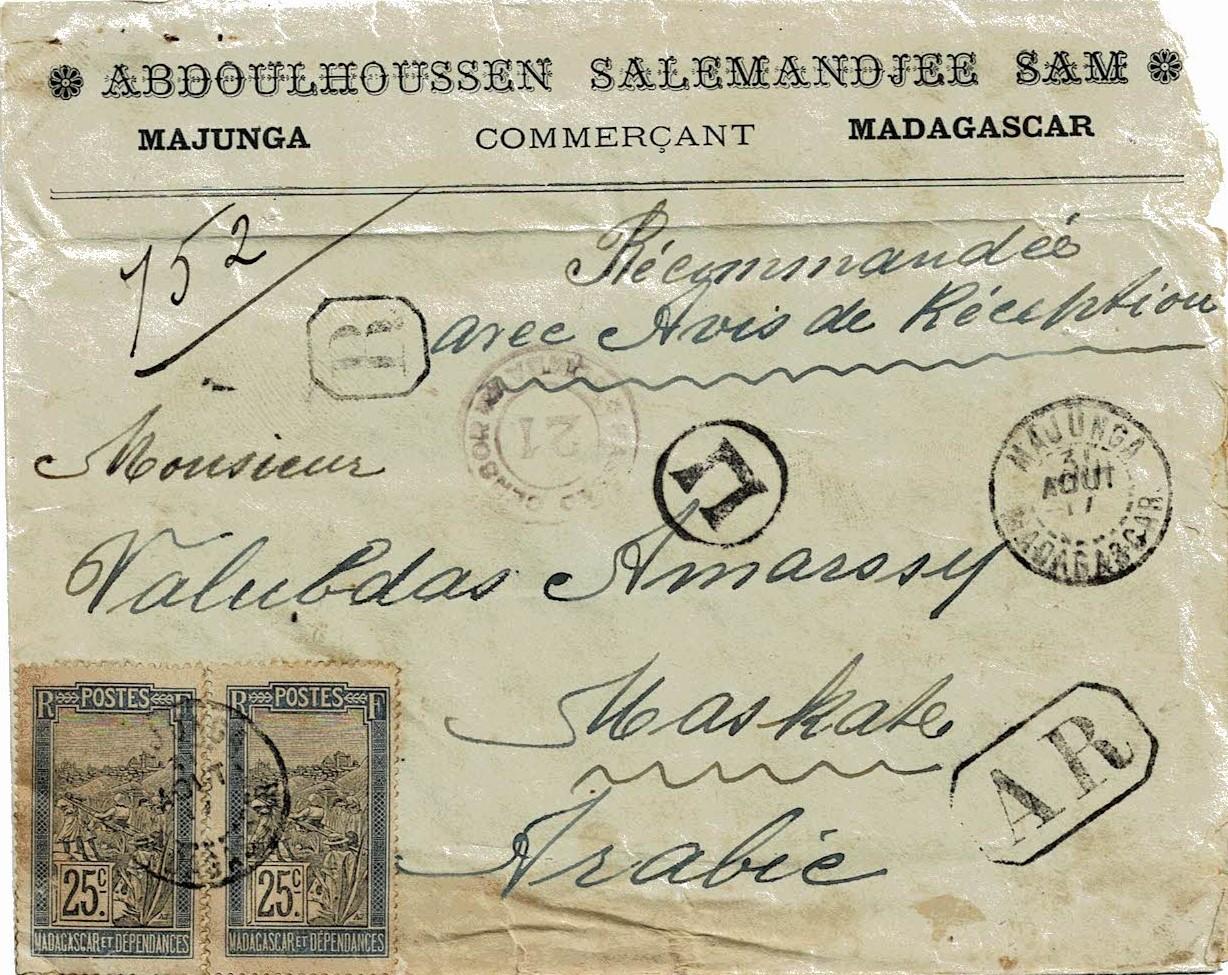 ABDOULHOUSSEN SALEMANDJEE SAM
MAJUNGA COMMERÇANT MADAGASCAR
752
Récommandée
R avec Avis de Réception
21
MAJUNGA
31
AOUT
11
MADAGASCAR
Monsieur
Valubdas Amarssy
Maskate
AR
Arabie
R POSTES F R POSTES F
25c. 25c.
MADAGASCAR ET DÉPENDANCES MADAGASCAR ET DÉPENDANCES